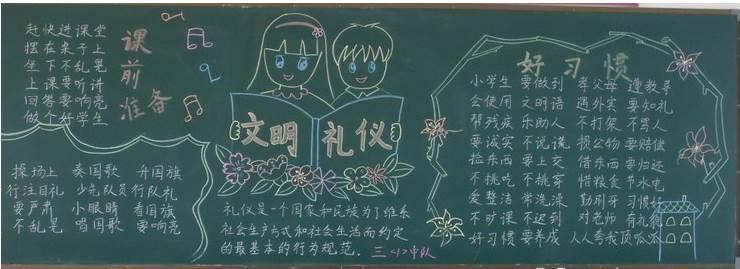 赶快进课堂
摆在桌子上
坐下不乱晃
上课要听讲
回答要响亮
做个好学生
课前准备
操场上 奏国歌 升国旗
行注目礼 少先队员行队礼
要严肃 小眼睛 看国旗
不乱晃 唱国歌 要响亮
文明礼仪
礼仪是一个国家和民族为了维系
社会生产方式和社会生活而约定
的最基本的行为规范。
三〈1〉中队
好习惯
小学生 要做到 孝父母 遵教导
会使用 文明语 遇外宾 要知礼
帮残疾 乐助人 不打架 不骂人
要诚实 不说谎 损公物 要赔偿
捡东西 要上交 借东西 要归还
不挑吃 不挑穿 惜粮食 节水电
爱整洁 常洗澡 勤刷牙 习惯好
不旷课 不迟到 对老师 有礼貌
好习惯 要养成 人人夸我顶呱呱